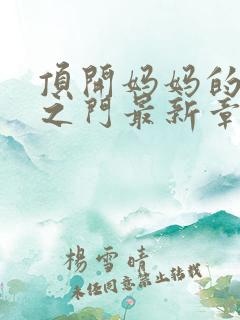 頂開妈妈的
之门最新章
楊雪晴
未经同意禁止转载